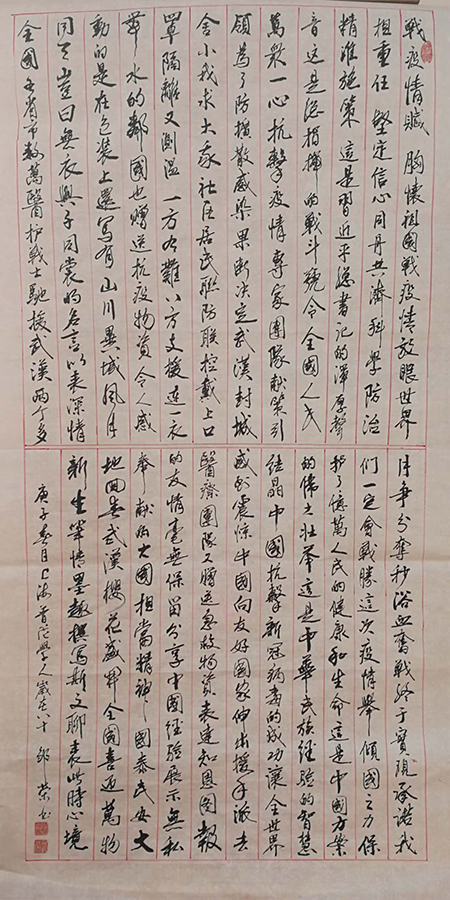 戰疫情賦 胸懷祖國戰疫情放眼世界
担重任 堅定信心同舟共濟 科學防治
精准施策 這是習近平總書记的渾厚聲
音这是总指揮的戰斗號令全國人民
萬眾一心抗擊疫情專家團隊献策引
領為了防擴散感染果断决定武漢封城
舍小我求大家社区居民聯防联控戴上口
罩隔離又測温一方有難八方支援連一衣
帶水的鄰國也贈送抗疫物資令人感
動的是在包裝上還寫有山川異域風月
同天豈曰無衣與子同裳的名言以表深情
全國各省市数萬醫护戰士馳援武漢两个多
月争分奪秒浴血奮戰终于實現承诺我
们一定會戰勝這次疫情舉傾國之力保
护了億萬人民的健康和生命這是中國方案
的偉大壮举這是中華民族经驗的智慧
结晶中國抗擊新冠病毒的成功讓全世界
感到震惊中國向友好國家伸出援手派去
醫療團隊又贈送急救物資表達知恩图報
的友情毫無保留分享中國经驗展示無私
奉献的大國担當精神國泰民安大
地回春武漢櫻花盛開全國喜迎萬物
新生筆情墨趣撰寫斯文聊表此時心境
庚子春月上海普陀學人歲在八十 邹荣书